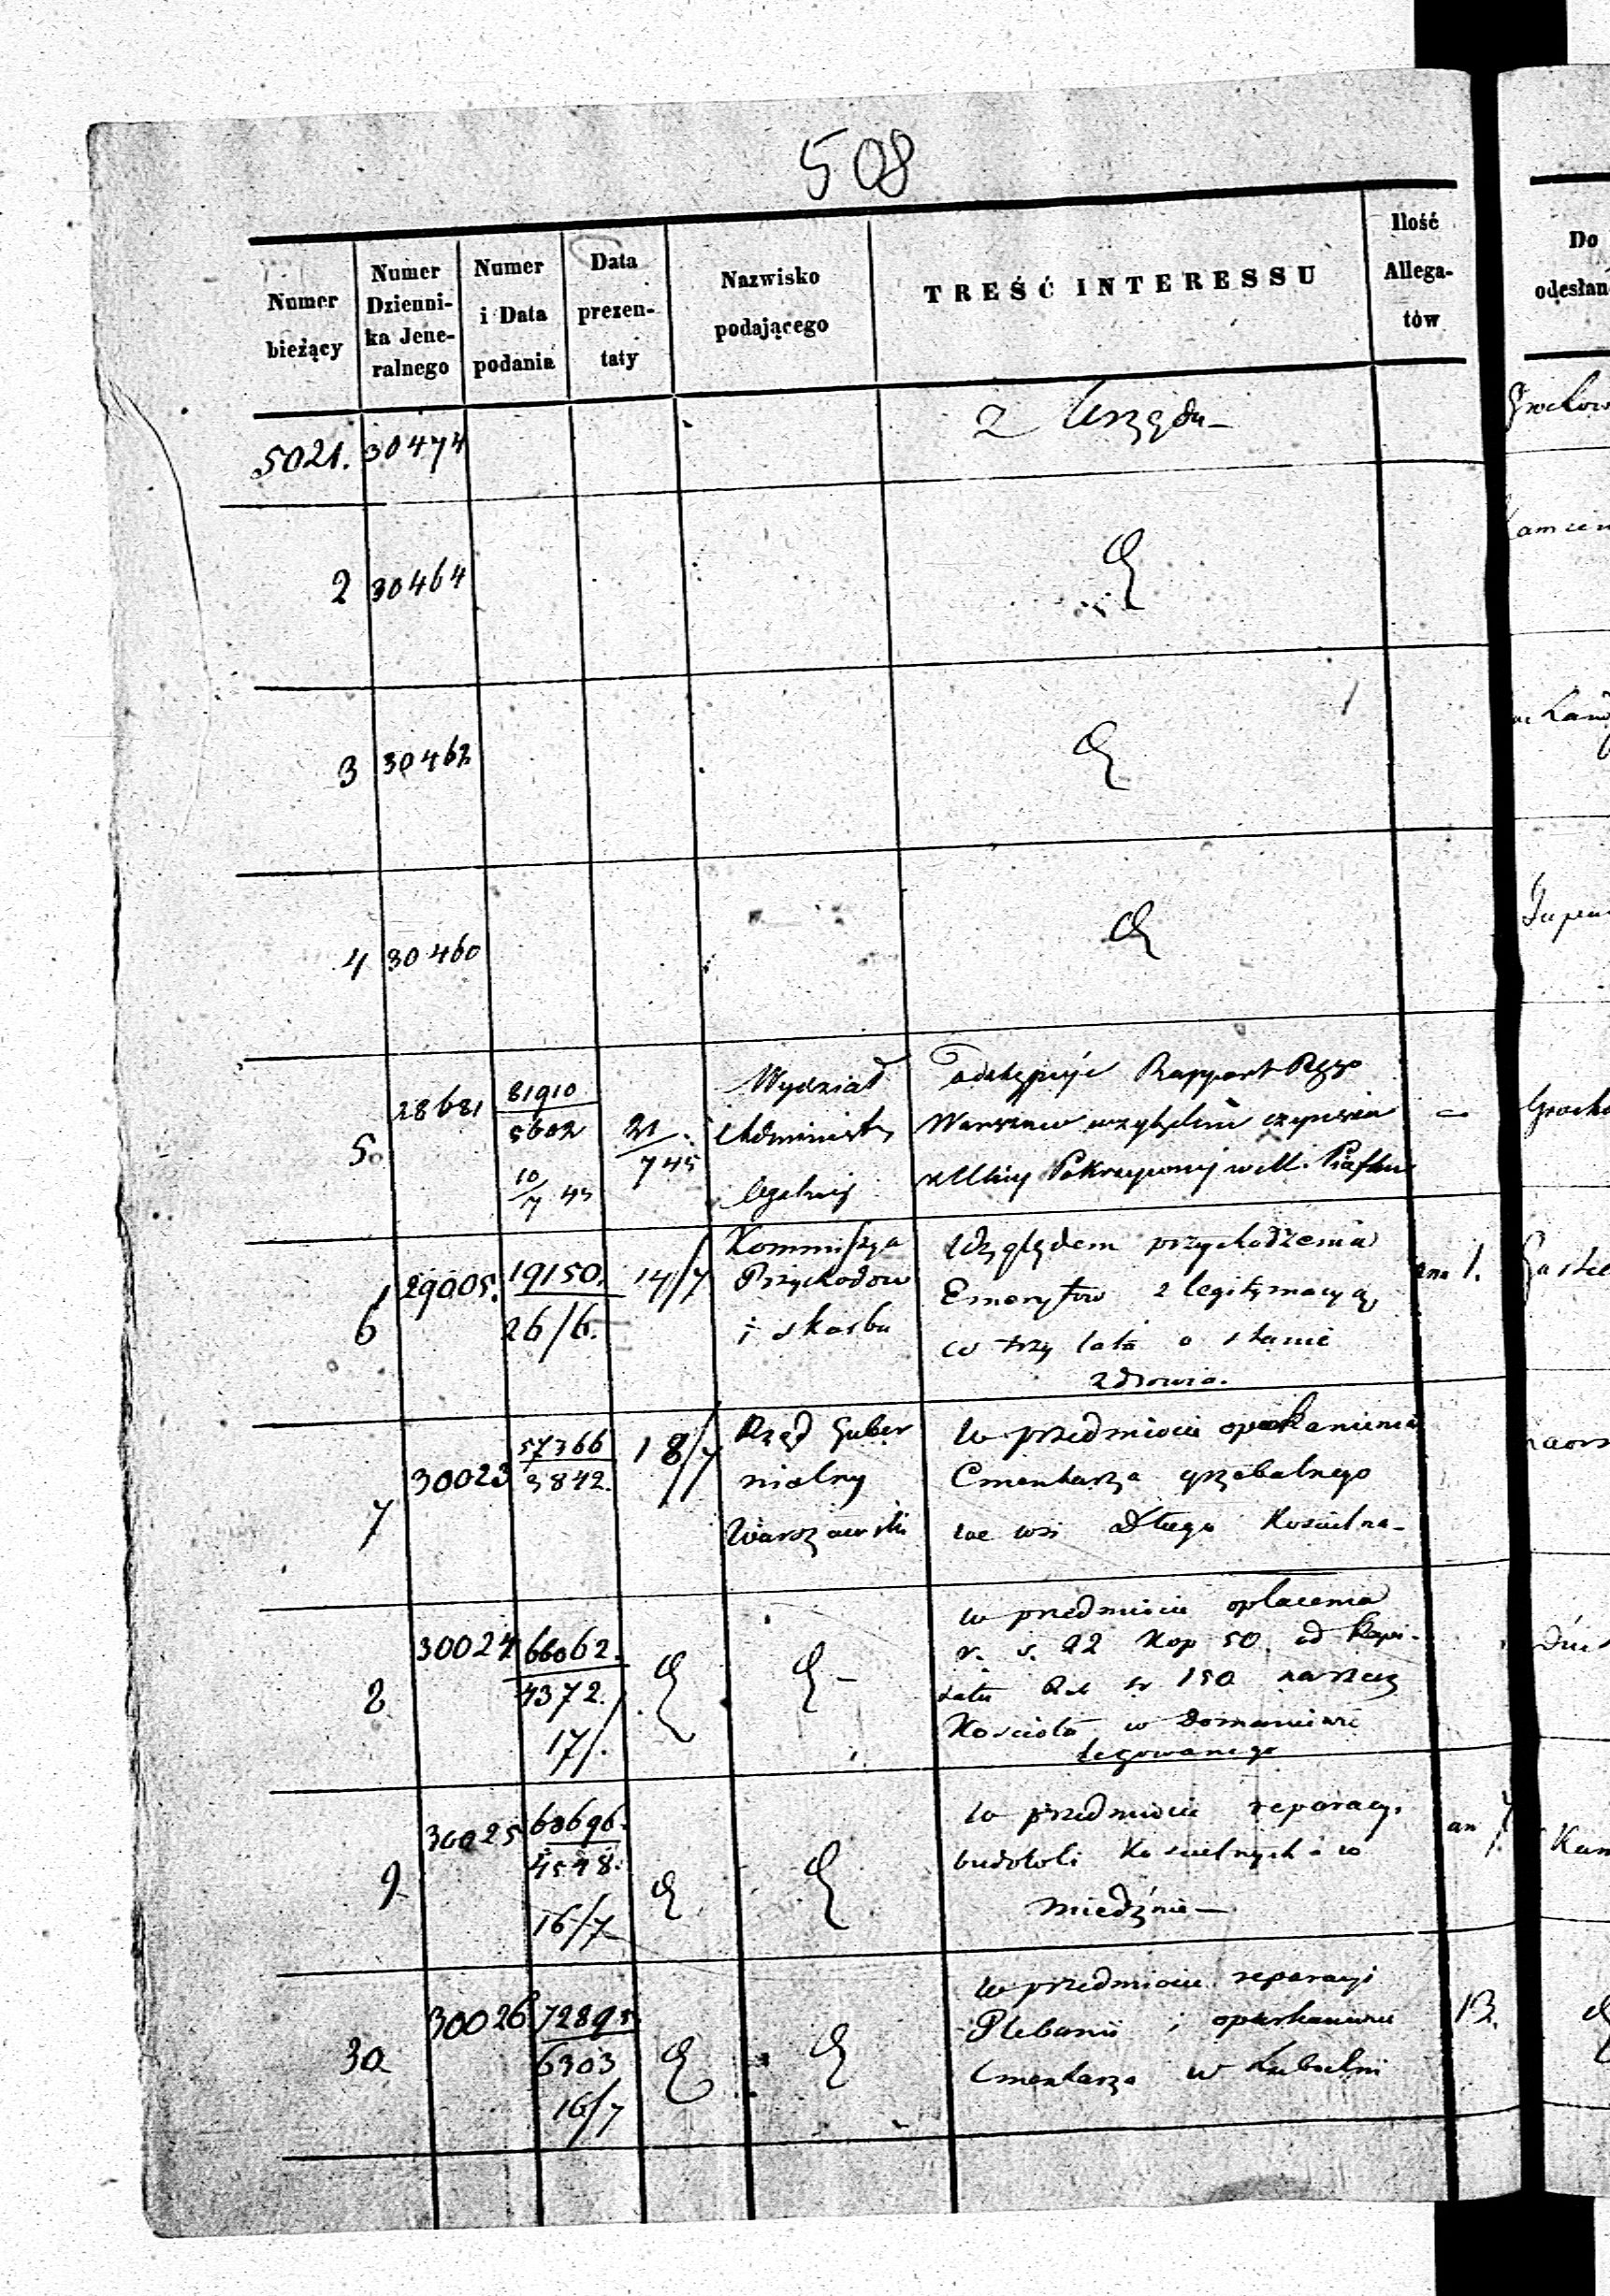 508
Numer bieżący
Numer Dzienni-ka Jene-ralnego
Numer i Data podania
Data prezen-taty
Nazwisko podającego
TREŚĆ INTERESSU
Ilość Allega-tów
Do odesłan
5021. 30474 z Urzędu
2 30464
3 30462
4 30460
5. 28681 81910 Wydział
5602 21/7 45 Administr
10/7 45
odstępuje Rapport Rząo
Warszaw względem czynszu
z Ulicy Pokrzywnej w M.
6 29005. 19150. 14/7 Kommissya
26/6. Przychodow
i skarbu
Względem przychodzenia
Emerytow z legitymacyą
co trzy lata o stanie
zdrowia.
1.
7 30023 57366 18/7 Rząd Guber
3842. nialny
Warszawski
w przedmiocie oparkanienia
Cmentarza grzebalnego
we wsi Długa Kościelna
8 30024 66062.
4372.
17/.
w przedmiocie opłacenia
r. s. 22 Kop 50. od Kapi-
tału Rs sr 150 na rzecz
Kościoła w Domaniewie
legowanego
9 30025 60696.
4548.
16/7
w przedmiocie reparacyi
budowli Kościelnych w
Miedźnie
30 30026 72895.
6303
16/7
w przedmiocie reparacyi
Plebanii i oparkanienia
Cmentarza w
13.